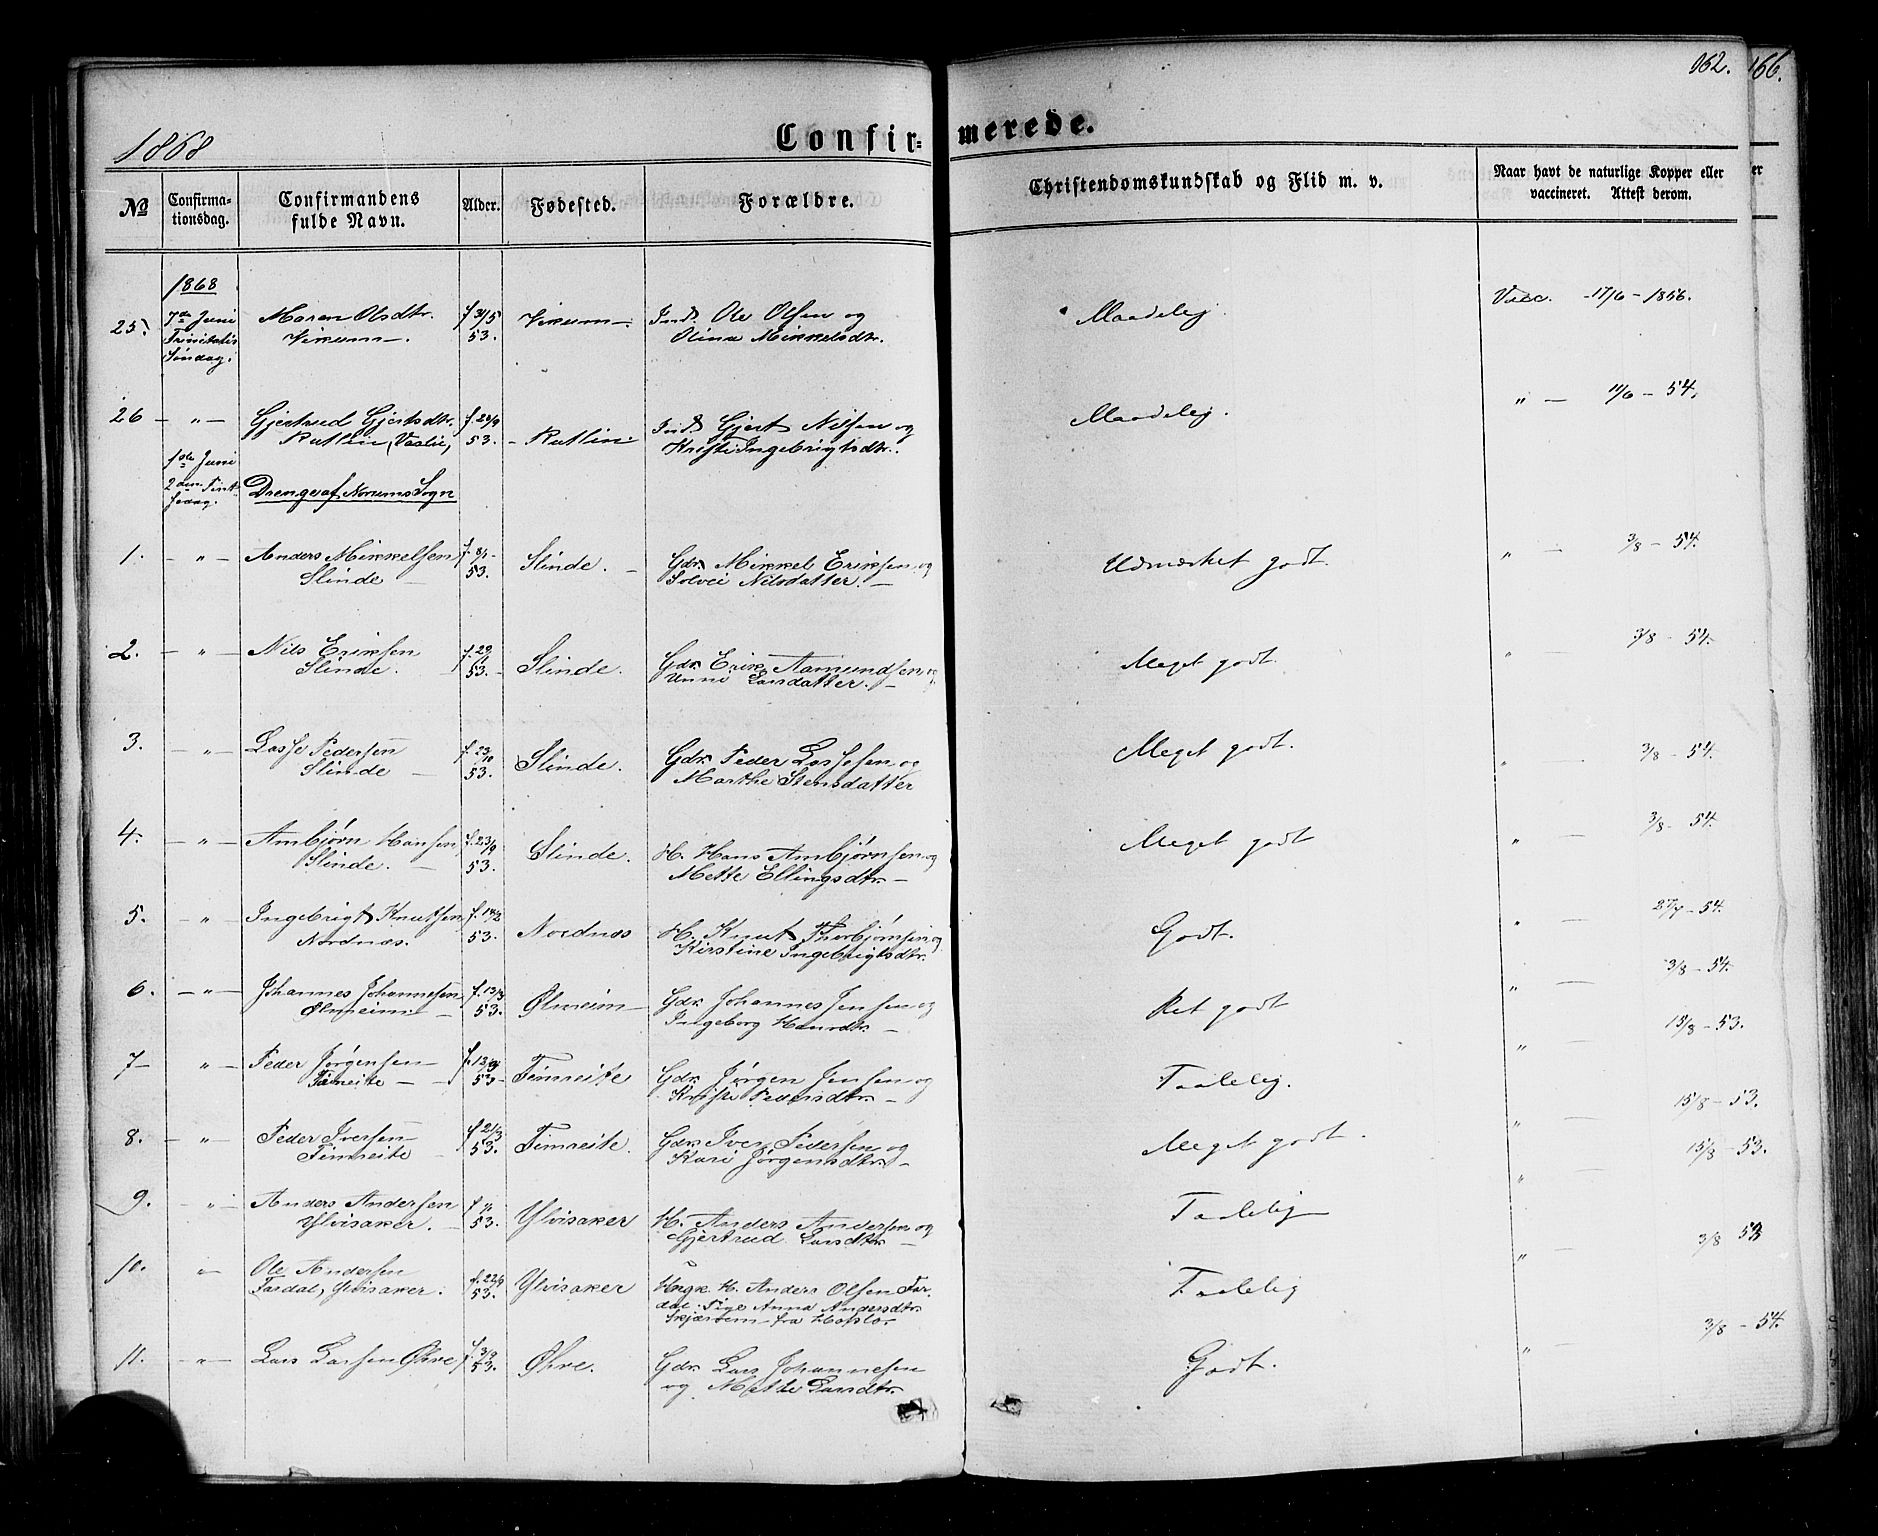 162.
166.
1868
Confir=
merede.
No
Confirma-
tionsdag.
Confirmandens
fulde Navn.
Alder.
Fødested.
Forældre.
Christendomskundskab og Flid m. v.
Naar havt de naturlige Kopper eller
vaccineret. Attest derom.
1868
25. 7de Juni Maren Olsdtr. f 31/5 Vikum Ind. Ole Olsen og Maadelig Vacc. 17/6 - 1856.
Trinitatis Vikum. 53. Olina Mikkelsdtr.
Søndag.
26 - " - Gjertrud Gjertsdtr. f. 24/9 Rutlin Ind. Gjert Nilsen og Maadelig. " - 11/6 - 54.
Rutlin (Vaslie, 53. Kristi Ingebrigtsdtr.
1ste Juni
2den Pint-
sedag. Drenge af Norums Sogn
1. - " - Anders Mikkelsen f. 8/1 Slinde. Gdr. Mikkel Eriksen og Udmærket godt. " 3/8 - 54.
Slinde 53. Solvei Nilsdatter.
2. - " - Nils Eriksen f. 29/ Slinde. Gdr. Erik Aamundsen og Meget godt. " 3/8 - 54.
Slinde. 53. Unni Larsdatter.
3. - " - Lasse Pedersen f. 23/10 Slinde. Gdr. Peder Lassesen og Meget godt. " 3/8 - 54.
Slinde 53. Marthe Stensdatter
4. - " - Ambjørn Hansen f. 23/9 Slinde. H. Hans Ambjørnsen og Meget godt " 3/8 - 54.
Slinde. 53. Mette Ellingsdtr.
5. - " - Ingebrigt Knutsen f. 14/2 Nordnæs H. Knut Thorbjørnsen og Godt. " 27/7 - 54.
Nordnæs. 53. Kirstine Ingebrigtsdtr.
6. - " - Johannes Johannesen f. 13/3 Ølmeim Gdr. Johannes Jensen og Ret godt " 3/8 - 54.
Ølmeim 53. Ingeborg Hansdtr.
7 - " - Peder Jørgensen f. 13/ Timreite Gdr. Jørgen Jensen og Taalelig. " 15/8 - 53.
Timreite 53. Kristi Pedersdtr.
8. - " - Peder Iversen f 21/3 Timreite. Gdr. Iver Pedersen og Meget godt. " 15/8 - 53.
Timreite 53. Kari Jørgensdtr.
9. - " - Anders Andersen f Ylvisaker H. Anders Andersen og Taalelig " 15/8 - 53.
Ylvisaker. 53. Gjertrud Larsdtr.
10. " Ole Andersen f. 22/9 Ylvisaker Ungk. H. Anders Olsen Far- Taalelig " 3/8 53
Fardal, Ylvisaker. 53. dal. Pige Anna Andersdtr.
Skjærsem fra Hafslo.
11. - " - Lars Larsen Øhre f. 3/9 Øhre. Gdr. Lars Johannesen Godt. " 3/8 - 54.
53. og Mette Larsdtr.